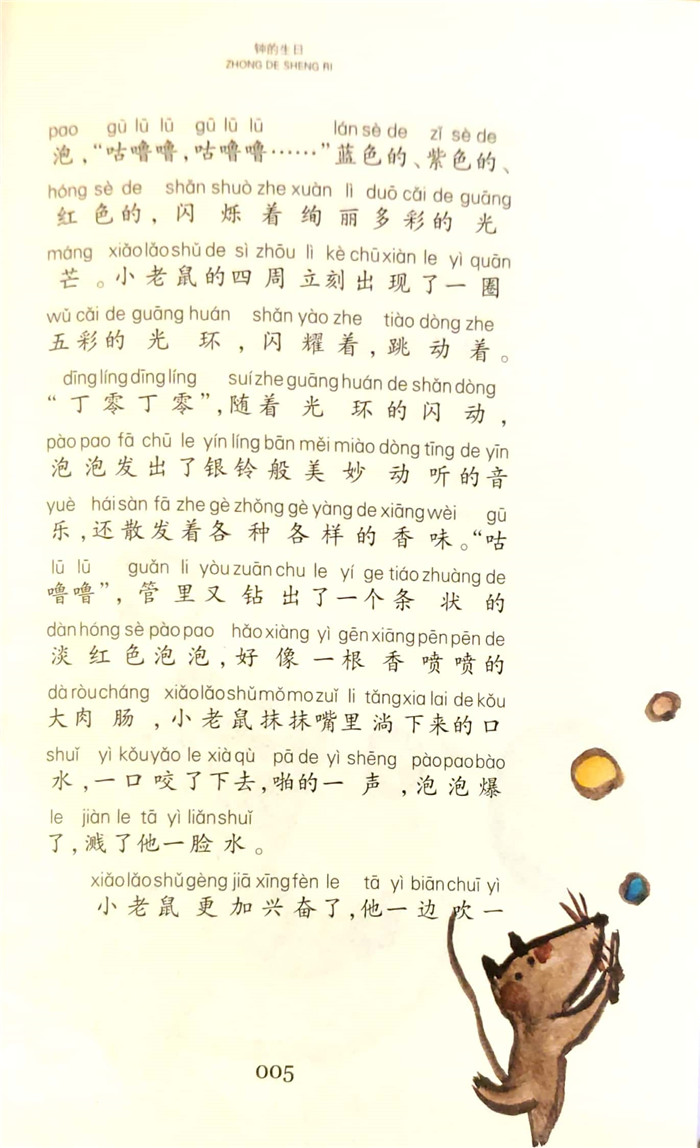 钟的生日
ZHONG DE SHENG RI
pao gū lū lū gū lū lū lán sè de zǐ sè de
泡，“咕噜噜，咕噜噜……”蓝色的、紫色的、
hóng sè de shǎn shuò zhe xuàn lì duō cǎi de guāng
红色的，闪烁着绚丽多彩的光
máng xiǎo lǎo shǔ de sì zhōu lì kè chū xiàn le yì quān
芒。小老鼠的四周立刻出现了一圈
wǔ cǎi de guāng huán shǎn yào zhe tiào dòng zhe
五彩的光环，闪耀着，跳动着。
dīng líng dīng líng suí zhe guāng huán de shǎn dòng
“丁零丁零”，随着光环的闪动，
pào pao fā chū le yín líng bān měi miào dòng tīng de yīn
泡泡发出了银铃般美妙动听的音
yuè hái sàn fā zhe gè zhǒng gè yàng de xiāng wèi gū
乐，还散发着各种各样的香味。“咕
lū lū guǎn li yòu zuān chu le yí ge tiáo zhuàng de
噜噜”，管里又钻出了一个条状的
dàn hóng sè pào pao hǎo xiàng yì gēn xiāng pēn pēn de
淡红色泡泡，好像一根香喷喷的
dà ròu cháng xiǎo lǎo shǔ mǒ mo zuǐ li tǎng xia lai de kǒu
大肉肠，小老鼠抹抹嘴里淌下来的口
shuǐ yì kǒu yǎo le xià qù pā de yì shēng pào pao bào
水，一口咬了下去，啪的一声，泡泡爆
le jiàn le tā yì liǎn shuǐ
了，溅了他一脸水。
xiǎo lǎo shǔ gèng jiā xīng fèn le tā yì biān chuī yì
小老鼠更加兴奋了，他一边吹一
005